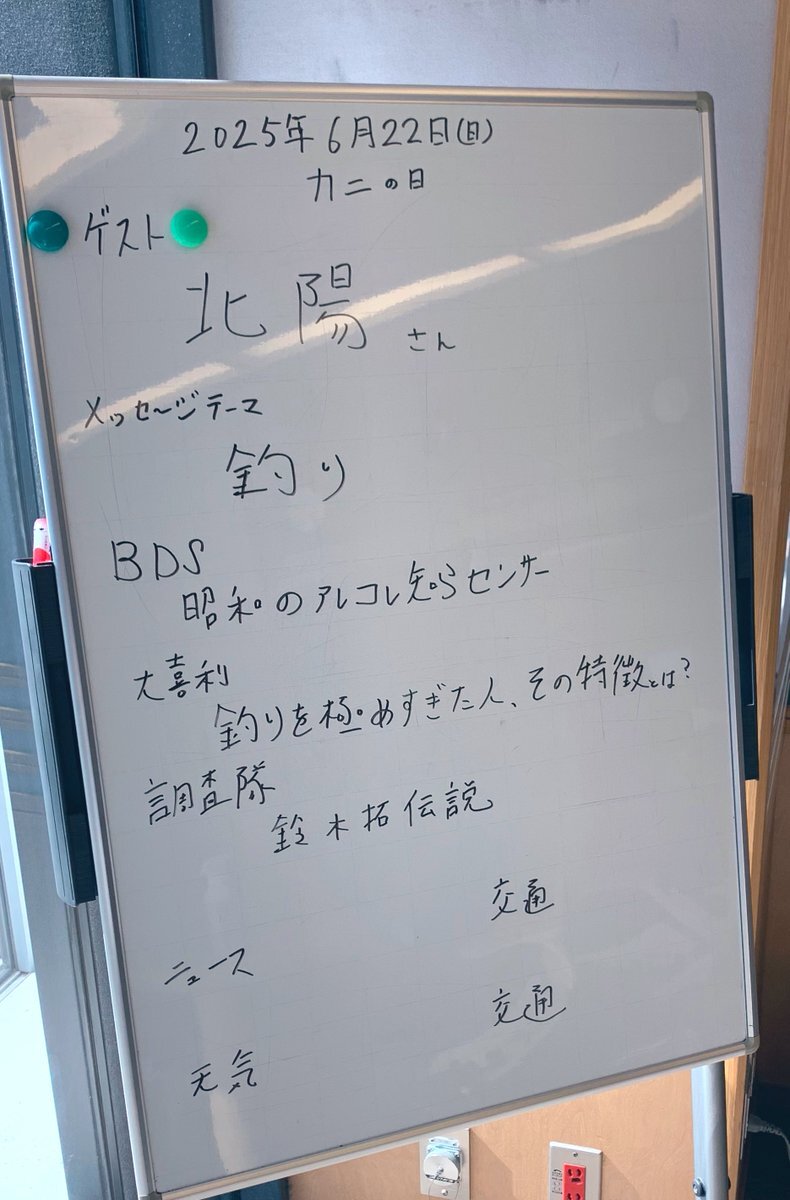 2025年6月22日(日)
カニの日
ゲスト
北陽さん
メッセージテーマ
釣り
BDS
昭和のアレコレ知らセンサー
大喜利
釣りを極めすぎた人、その特徴とは?
調査隊
鈴木拓伝説
交通
ニュース
交通
天気